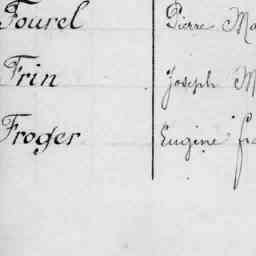 Fourel Pierre Ma
Frin Joseph M
Froger Eugène